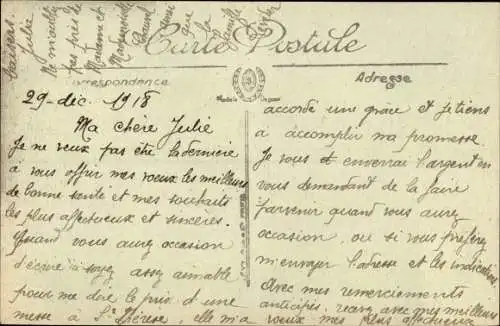 Carte Postale
Correspondance
Adresse
29-déc. 1918
Ma chère Julie
Je ne veux pas être la dernière
à vous offrir mes voeux les meilleurs
de bonne santé et mes souhaits
les plus affectueux et sincères.
Quand vous aurez occasion
d'écrire à soyez assez aimable
pour me dire le prix d'une
messe à Ste Thérèse, elle m'a
accordé une grâce et je tiens
à accomplir ma promesse.
Je vous enverrai l'argent en
vous demandant de la faire
parvenir quand vous aurez
occasion, ou si vous préférez
m'envoyer l'adresse et les indications
Avec mes remerciements
anticipés, recevez avec mes meilleurs
voeux mes plus affectueux
baisers.
Julie
N'oubliez
pas près de
Madame et
Mademoiselle
que
la
famille